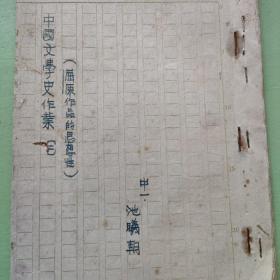 中國文學史作業(三)
(屈原作品的思想性)
中一.
池曦朝